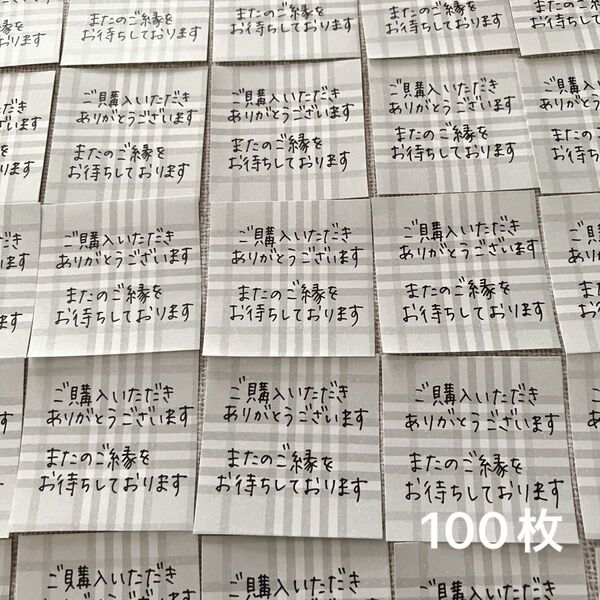 またのご縁を
お待ちしております
お待ちしております
またのご縁を
お待ちしております
またのご縁を
お待ちしております
ご購入いただき
ありがとうございます
またのご縁を
お待ちしております
ご購入いただき
ありがとうございます
またのご縁を
お待ちしております
ご購入いただき
ありがとうございます
またのご縁を
お待ちしております
ご購入いただき
ありがとうございます
またのご縁を
お待ちしております
ご購入いただき
ありがとうございます
またのご縁を
お待ちしております
ご購入いただき
ありがとうございます
またのご縁を
お待ちしております
ご購入いただき
ありがとうございます
またのご縁を
お待ちしております
ご購入いただき
ありがとうございます
またのご縁を
お待ちしております
ご購入いただき
ありがとうございます
またのご縁を
お待ちしております
100枚
ご購入いただき
ありがとうございます
ご購入いただき
ありがとうございます
ご購入いただき